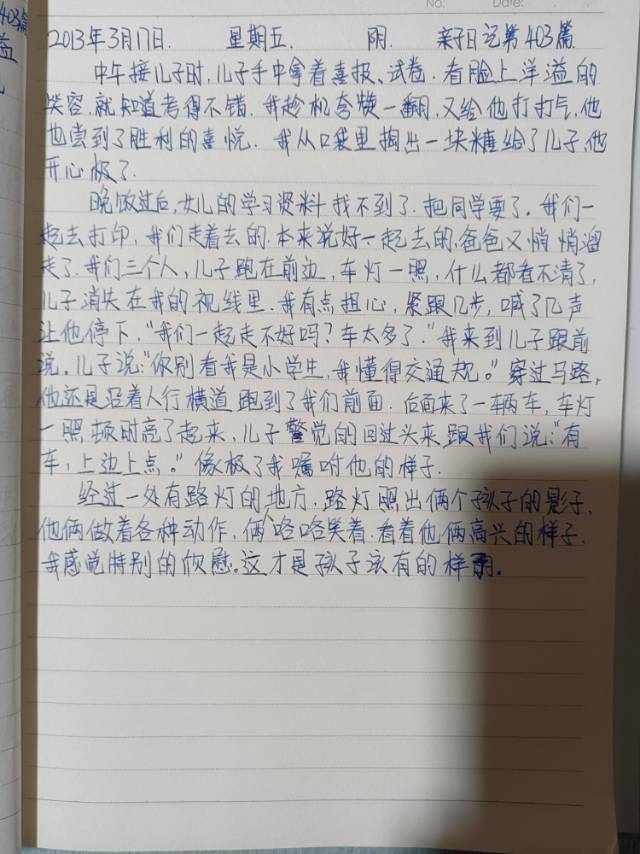 No: Date:
403篇
2013年3月17日. 星期五. 阴. 亲子日记第403篇.
中午接儿子时,儿子手中拿着喜报、试卷.看脸上洋溢的
笑容.就知道考得不错.我趁机夸赞一翻,又给他打打气,他
也尝到了胜利的喜悦.我从口袋里掏出一块糖给了儿子,他
开心极了.
晚饭过后,女儿的学习资料找不到了.把同学要了.我们一
起去打印,我们走着去的.本来说好一起去的,爸爸又悄悄溜
走了.我们三个人,儿子跑在前边,车灯一照,什么都看不清了,
儿子消失在我的视线里.我有点担心,紧跟几步,喊了几声
让他停下."我们一起走不好吗?车太多了."我来到儿子跟前
说.儿子说:"你别看我是小学生,我懂得交通规。"穿过马路,
他还是沿着人行横道跑到了我们前面.后面来了一辆车,车灯
一照顿时亮了起来,儿子警觉的回过头来跟我们说:"有
车,上边上点。"像极了我嘱咐他的样子.
经过一处有路灯的地方,路灯照出俩个孩子的影子,
他俩做着各种动作,俩咯咯笑着.看着他俩高兴的样子.
我感觉特别的欣慰。这才是孩子该有的样子。